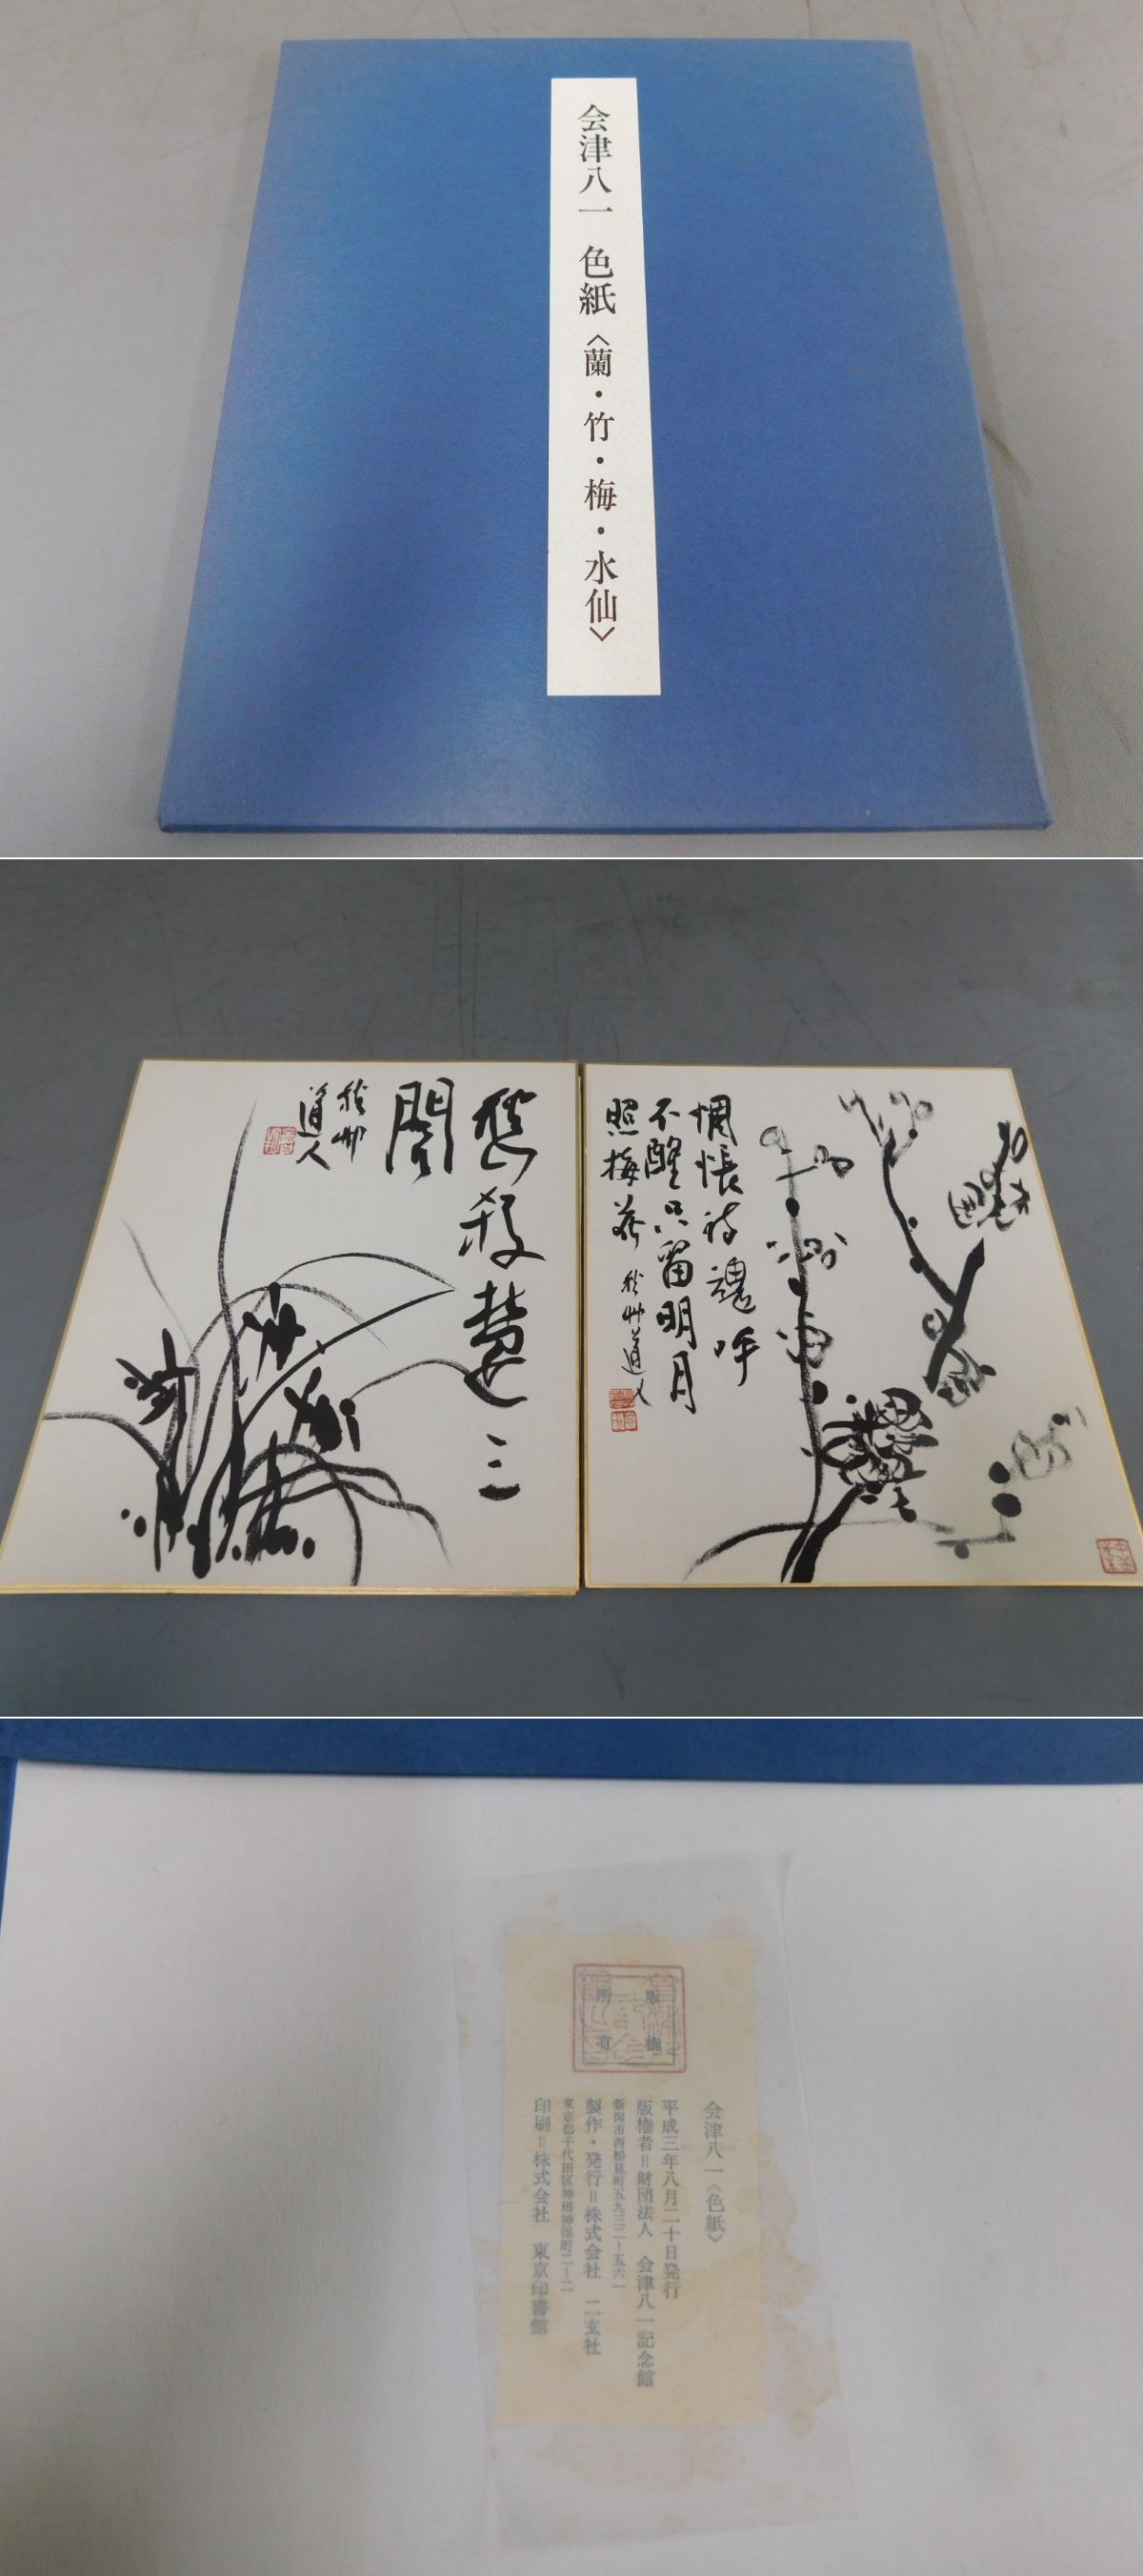 会津八一 色紙〈蘭・竹・梅・水仙〉
愁殺楚三
閭
秋艸
道人
惆悵詩魂呼
不醒只留明月
照梅花 秋艸道人
版権
所有
会津八一〈色紙〉
平成三年八月二十日発行
版権者＝財団法人 会津八一記念館
新潟市西船見町五九三二―五六一
製作・発行＝株式会社 二玄社
東京都千代田区神田神保町二―二
印刷＝株式会社 東京印書館